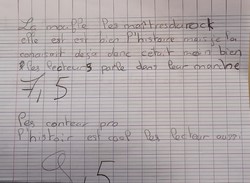 Le mouffle les maîtres du rock
elle est est bien l'histoire mais je la
conaissait deça donc cétait moin bien
les lecteurs parle dans leur manche
7,5
Les conteur pro
l'histoir est cool les lecteur aussi
8,5